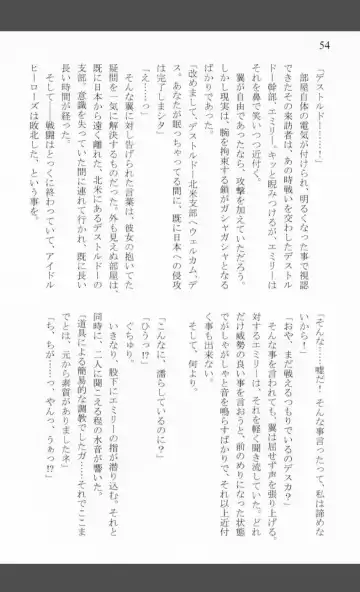 54
「デストルドー……！」
部屋自体の電気が付けられ、明るくなった事で視認
できたその来訪者は、あの時戦いを交わしたデストル
ドー幹部・エミリー。キッと睨みつけるが、エミリーは
それを鼻で笑いつつ近付く。
翼が自由であったなら、攻撃を加えていただろう。
しかし現実は、腕を拘束する鎖がガシャガシャとなる
ばかりであった。
「改めまして、デストルドー北米支部へウェルカム、デ
ス。あなたが眠っちゃってる間に、既に日本への侵攻
は完了しまシタ」
「え……っ」
そんな翼に対し告げられた言葉は、彼女の抱いてた
疑問を一気に解決するものだった。外も見えぬ部屋は、
既に日本から遠く離れた、北米にあるデストルドーの
支部。意識を失っていた間に連れて行かれ、既に長い
長い時間が経った。
そして――戦闘はとっくに終わっていて、アイドル
ヒーローズは敗北した、という事を。
「そんな……嘘だ！　そんな事言ったって、私は諦めな
いから！」
「おや、まだ戦えるつもりでいるのデスカ？」
そんな事を言われても、翼は屈せず声を張り上げる。
対するエミリーは、それを軽く聞き流していた。どれ
だけ威勢の良い事を言おうと、前のめりになった状態
でがしゃがしゃと音を鳴らすばかりで、それ以上近付
く事も出来ない。
そして、何より。
「こんなに、濡らしているのに？」
「ひうっ!?」
ぐちゅり。
いきなり、股下にエミリーの指が潜り込む。それと
同時に、二人に聞こえる程の水音が響いた。
「道具による簡易的な調教でしたガ……それでここま
でとは、元から素質がありましたネ」
「ち、ちが……っ、やんっ、うぁっ!?」